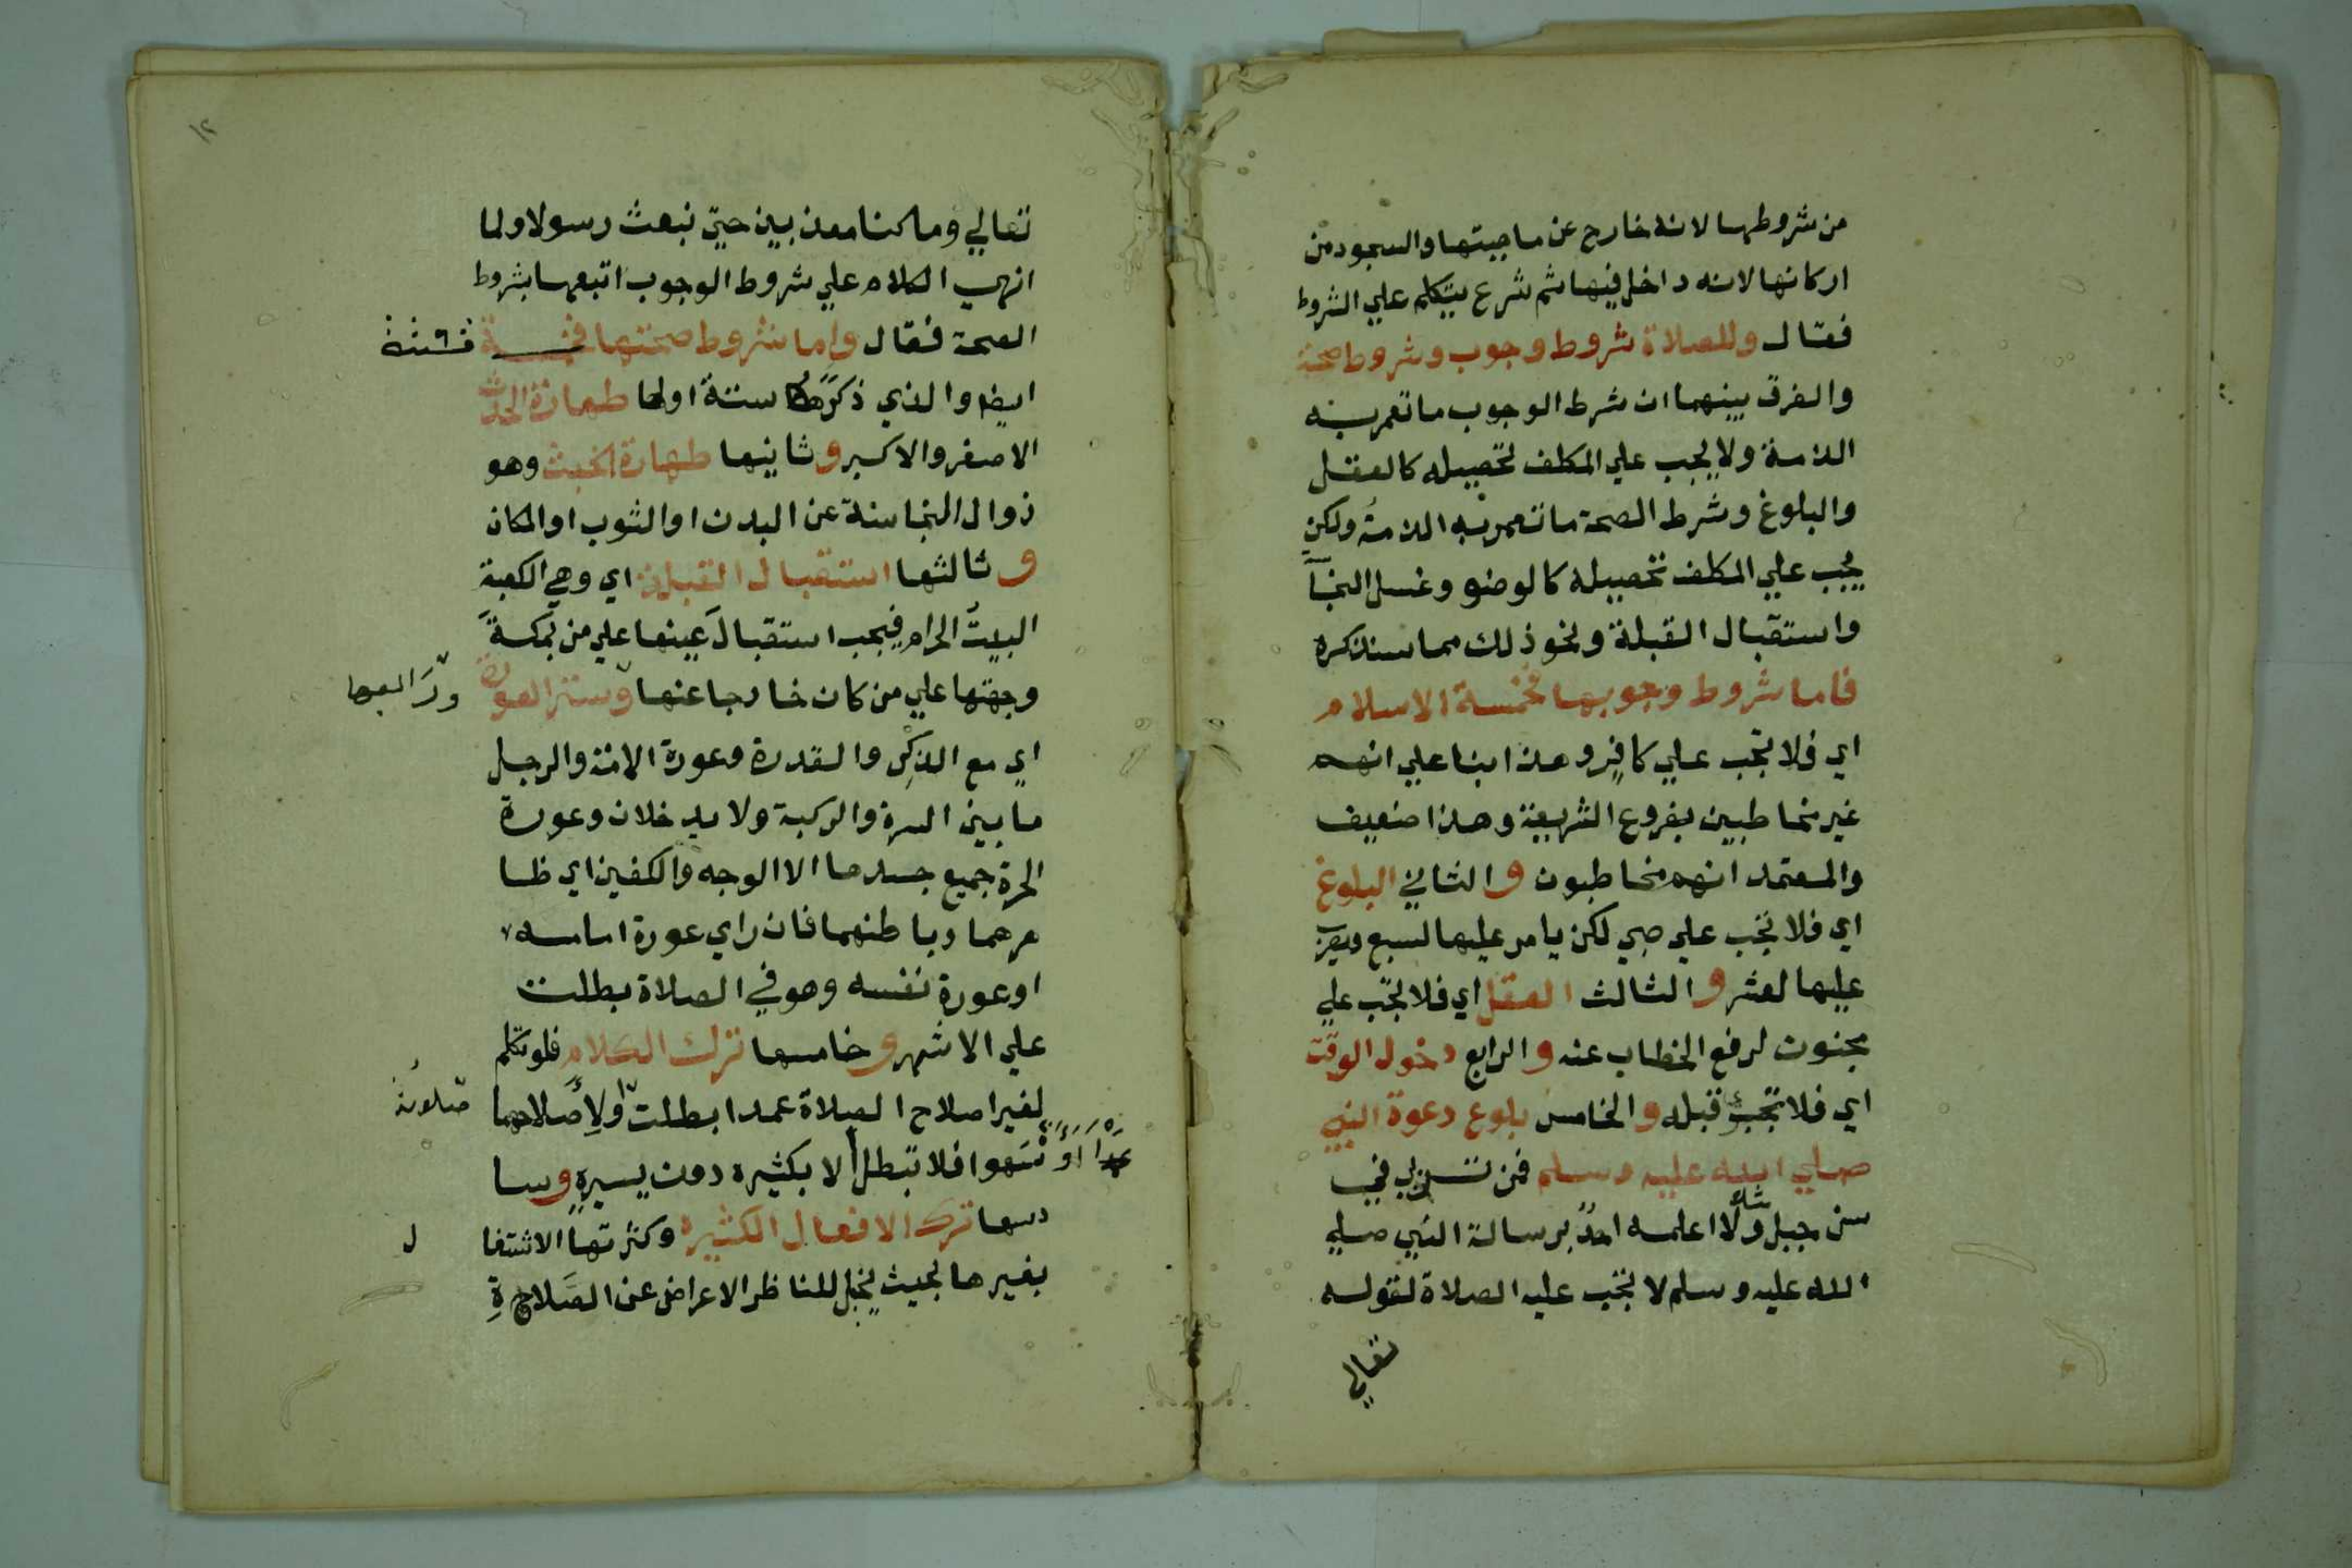 من شروطها لانه خارج عن ماهيتها والسجود من
اركانها لانه داخل فيها ثم شرع يتكلم علي الشروط
فقال وللصلاة شروط وجوب وشروط صحة
والفرق بينهما ان شرط الوجوب ما تعمر به
الذمة ولا يجب علي المكلف تحصيله كالعقل
والبلوغ وشرط الصحة ما تعمر به الذمة ولكن
يجب علي المكلف تحصيله كالوضو وغسل النجا
واستقبال القبلة ونحو ذلك مما سنذكره
فاما شروط وجوبها فخمسة الاسلام
اي فلا تجب علي كافر وهذا بنا علي انهم
غير مخاطبين بفروع الشريعة وهذا ضعيف
والمعتمد انهم مخاطبون و الثاني البلوغ
اي فلا تجب علي صبي لكن يامر عليها لسبع ويضرب
عليها لعشر و الثالث العقل اي فلا تجب علي
مجنون لرفع الخطاب عنه و الرابع دخول الوقت
اي فلا تجب قبله و الخامس بلوغ دعوة النبي
صلي الله عليه وسلم فمن في
جبل مثلا ولا اعلمه احد برسالة النبي صلي
الله عليه وسلم لا تجب عليه الصلاة لقوله
تعالي
١٢
تعالي وما كنا معذبين حتي نبعث رسولا ولما
انهي الكلام علي شروط الوجوب اتبعها بشروط
الصحة فقال واما شروط صحتها فستة
ايضا والذي ذكرها ستة اولها طهارة الحدث
الاصغر والاكبر و ثانيها طهارة الخبث وهو
زوال النجاسة عن البدن او الثوب او المكان
و ثالثها استقبال القبلة اي وهي الكعبة
البيت الحرام فيجب استقبال عينها علي من بمكة
وجهتها علي من كان خارجا عنها وستر العورة
ورابعها
اي مع الذكر والقدرة وعورة الامة والرجل
ما بين السرة والركبة ولا يدخلان وعورة
الحرة جميع جسدها الا الوجه والكفين اي ظا
هرهما وباطنهما فان راي عورة امامه
او عورة نفسه وهو في الصلاة بطلت
علي الاشهر و خامسها ترك الكلام فلو تكلم
لغير اصلاح الصلاة عمدا بطلت ولاصلاحها
صلاته
عمدا او سهوا فلا تبطل الا بكثيره دون يسيره و سا
دسها ترك الافعال الكثيرة وكثرتها الاشتغا
ل
بغيرها بحيث يخيل للناظر الاعراض عن الصلاة